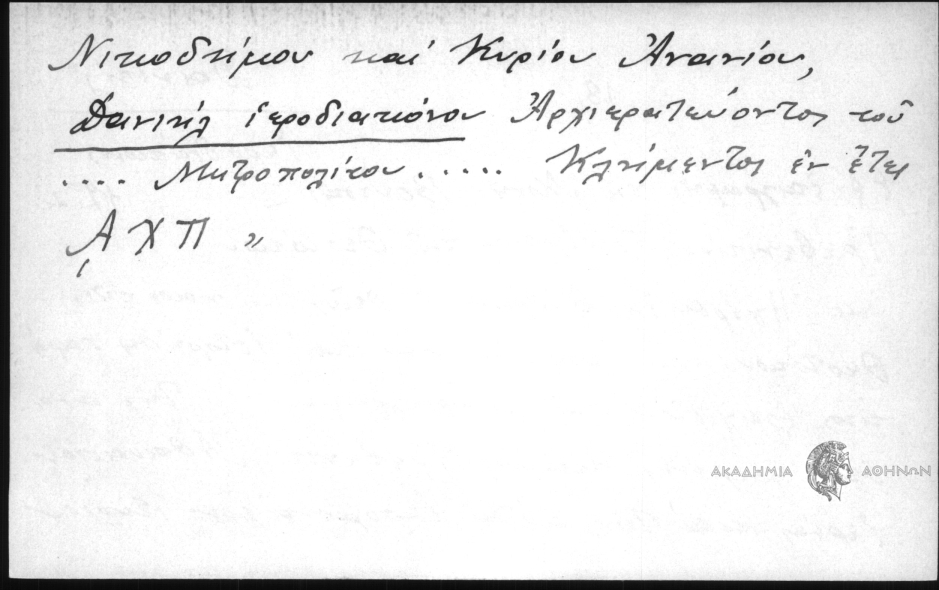 Νικοδήμου καί Κυρίου Ἀνανίου,
Δανιήλ ἱεροδιακόνου Ἀρχιερατεύοντος τοῦ
.... Μητροπολίτου ..... Κλήμεντος ἐν ἔτει
͵ΑΧΠ "
ΑΚΑΔΗΜΙΑ ΑΘΗΝΩΝ